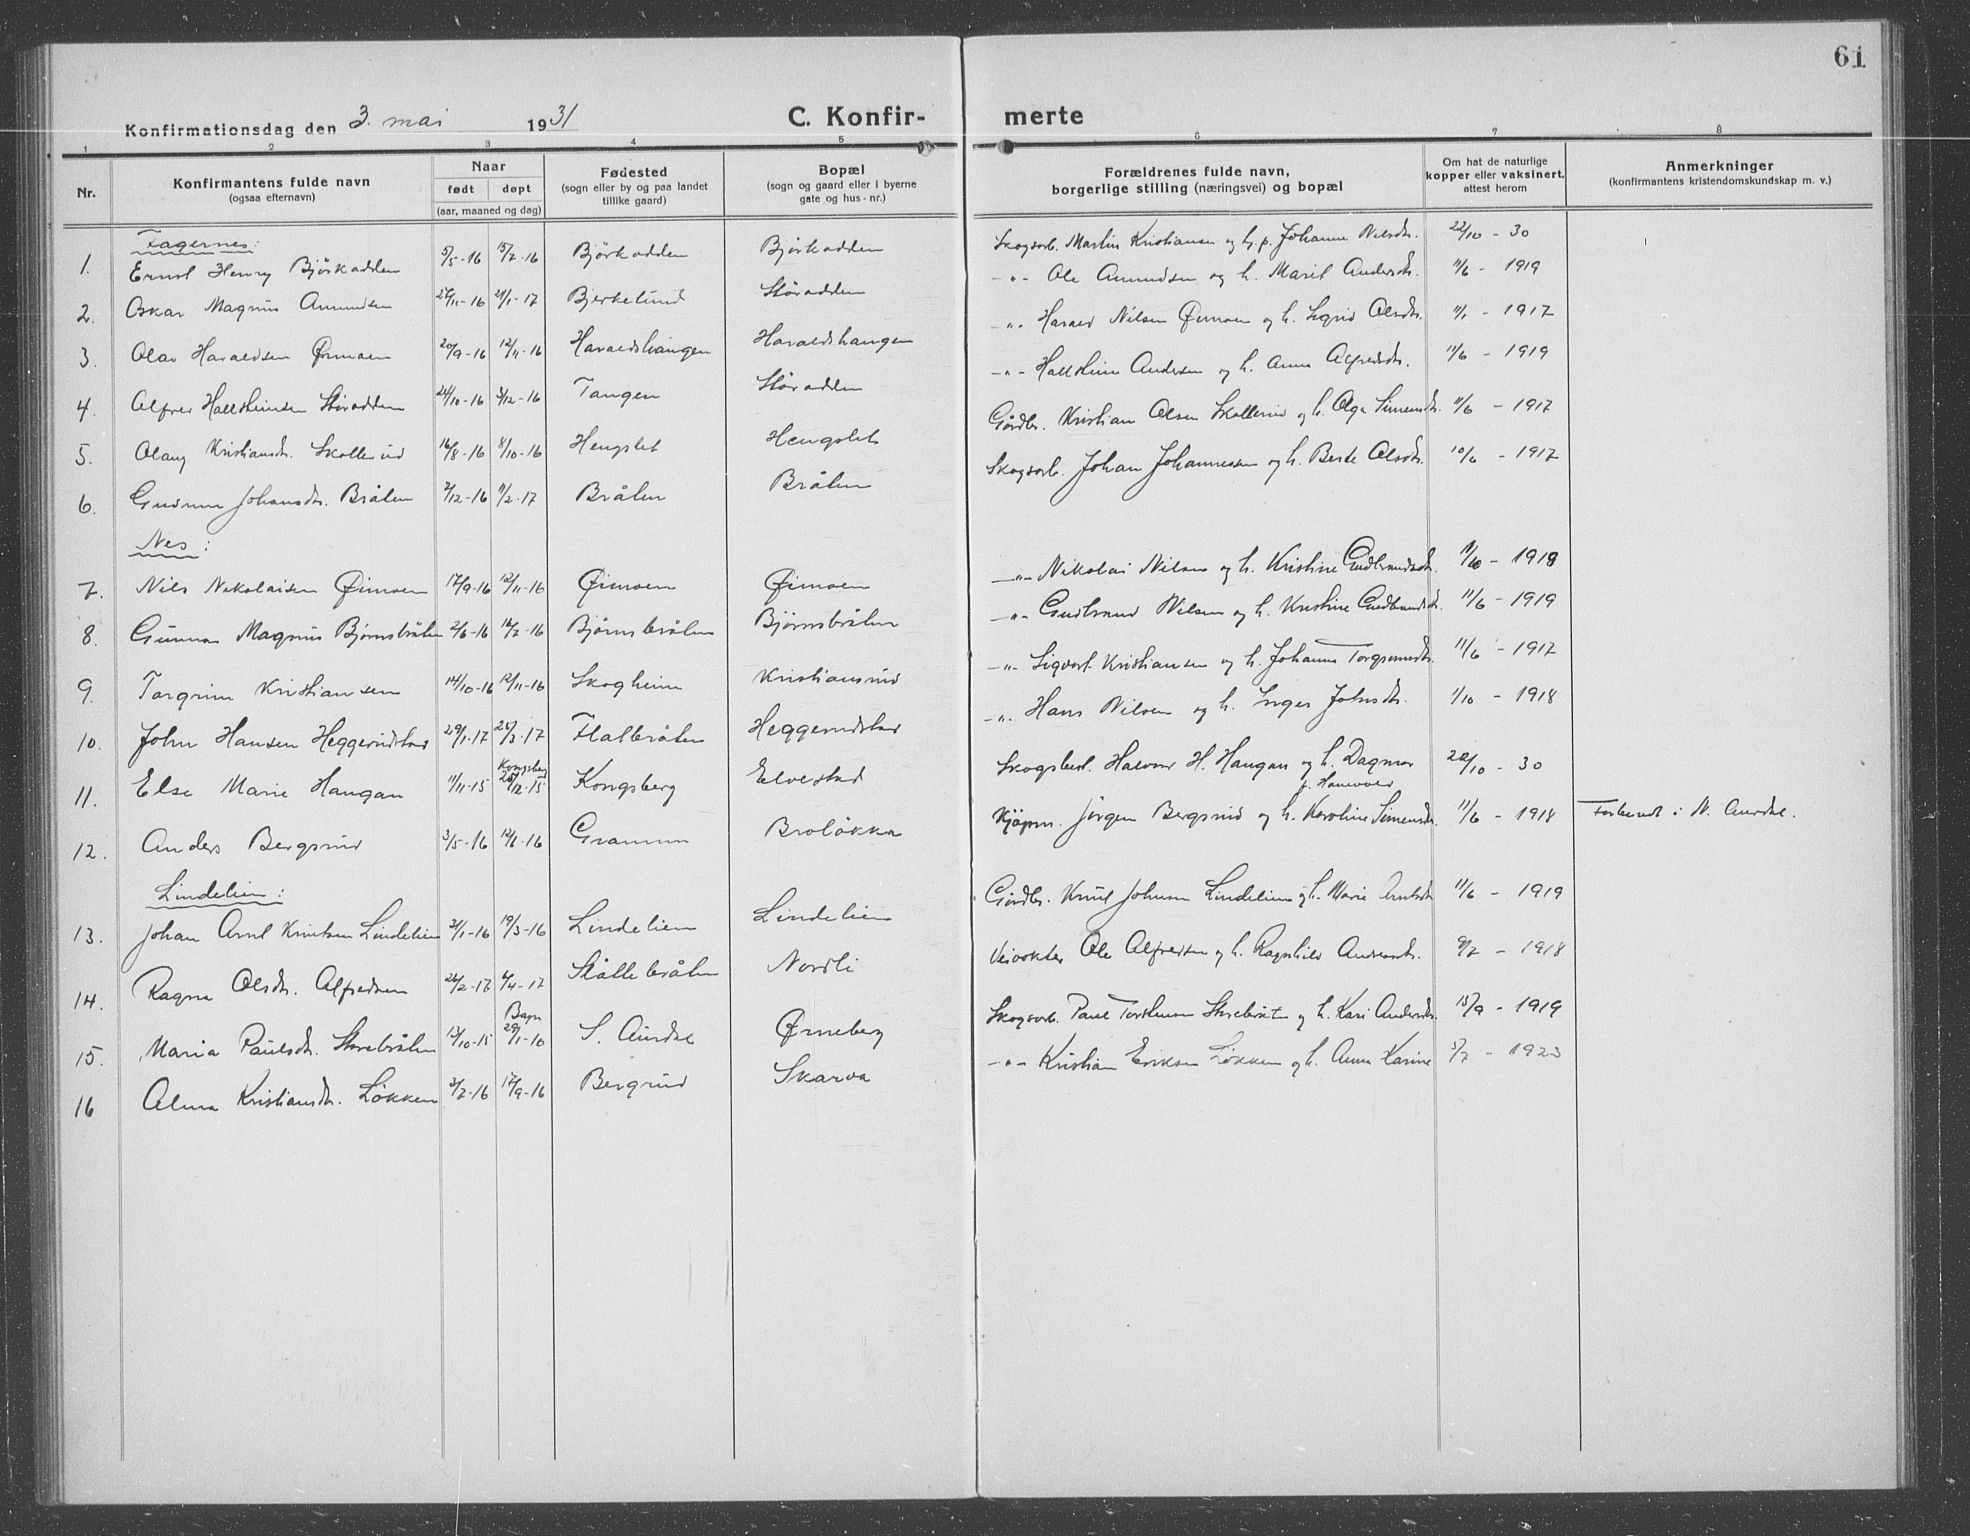 61
Konfirmationsdag den 3. mai 1931
C. Konfir- merte
1 2 3 4 5 6 7 8
Nr. Konfirmantens fulde navn (ogsaa efternavn) Naar født døpt (aar, maaned og dag) Fødested (sogn eller by og paa landet tillike gaard) Bopæl (sogn og gaard eller i byerne gate og hus-nr.) Forældrenes fulde navn, borgerlige stilling (næringsvei) og bopæl Om hat de naturlige kopper eller vaksinert, attest herom Anmerkninger (konfirmantens kristendomskundskap m. v.)
Fagernes:
1. Ernst Henry Bjørkodden 5/5-16 15/7-16 Bjørkodden Bjørkodden Skogsarb. Martin Kristiansen og h. p. Johanne Nilsdtr. 22/10 - 30
2. Oskar Magnus Amundsen 26/11-16 21/1-17 Bjerkelund Störodden -"- Ole Amundsen og h. Marit Andersdtr. 11/6 - 1919
3. Olav Haraldsen Øimoen 20/9-16 12/11-16 Haraldshaugen Haraldshaugen -"- Harald Nilsen Øimoen og h. Sigrid Olsdtr. 11/1 - 1917
4. Alfred Hallsteinsen Störodden 24/10-16 3/12-16 Tangen Störodden -"- Hallstein Andersen og h. Anna Alfredsdtr. 11/6 - 1919
5. Olaug Kristiansdtr. Skollerud 16/8-16 8/10-16 Hengslet Hengslet Gårdbr. Kristian Olsen Skollerud og h. Olga Simensdtr. 11/6 - 1917
6. Gudrun Johansdtr. Bråten 7/12-16 11/2-17 Bråten Bråten Skogsarb. Johan Johannessen og h. Berte Olsdtr. 10/6 - 1917
Nes:
7. Nils Nikolaisen Øimoen 17/9-16 12/11-16 Øimoen Øimoen -"- Nikolai Nilsen og h. Kristine Gudbrandsdtr. 11/10 - 1918
8. Gunnar Magnus Bjørnsbråten 2/6-16 16/7-16 Bjørnsbråten Bjørnsbråten -"- Gudbrand Nilsen og h. Kristine Gudbrandsdtr. 11/6 - 1919
9. Torgrim Kristiansen 14/10-16 12/11-16 Skogheim Kristiansrud -"- Sigvart Kristiansen og h. Johanna Torgrimsdtr. 11/6 - 1917
10. John Hansen Heggerudstad 29/1-17 24/3-17 Flatbråten Heggerudstad -"- Hans Nilsen og h. Inger Johnsdtr. 1/10 - 1918
11. Else Marie Haugan 11/11-15 Kongsberg 26/12-15 Kongsberg Elvestad Skogsbest. Halvor H. Haugan og h. Dagmar f. 22/10 - 30
12. Anders Bergsrud 3/5-16 12/6-16 Gramum Broløkka Kjøpm. Jørgen Bergsrud og h. Karoline Simensdtr. 11/6 - 1918 Forberedt i N. Aurdal.
Lindelien:
13. Johan Arnt Knutsen Lindelien 2/1-16 19/3-16 Lindelien Lindelien Gårdbr. Knut Johnsen Lindelien og h. Marie Arntsdtr. 11/6 - 1919
14. Ragna Olsdtr. Alfredsen 26/2-17 6/4-17 Ståltebråten Nordli Veivokter Ole Alfredsen og h. Ragnhild Andersdtr. 9/7 - 1918
15. Maria Paulsdtr. Skrebråten 13/10-15 Bagn 29/1-16 S. Aurdal Ørneberg Skogsarb. Paul Torsteinsen Skrebråten og h. Kari Andersdtr. 15/9 - 1919
16 Alma Kristiansdtr. Løkken 2/7-16 17/9-16 Bergrud Skarva -"- Kristian Eriksen Løkken og h. Anna Karine 5/7 - 1923